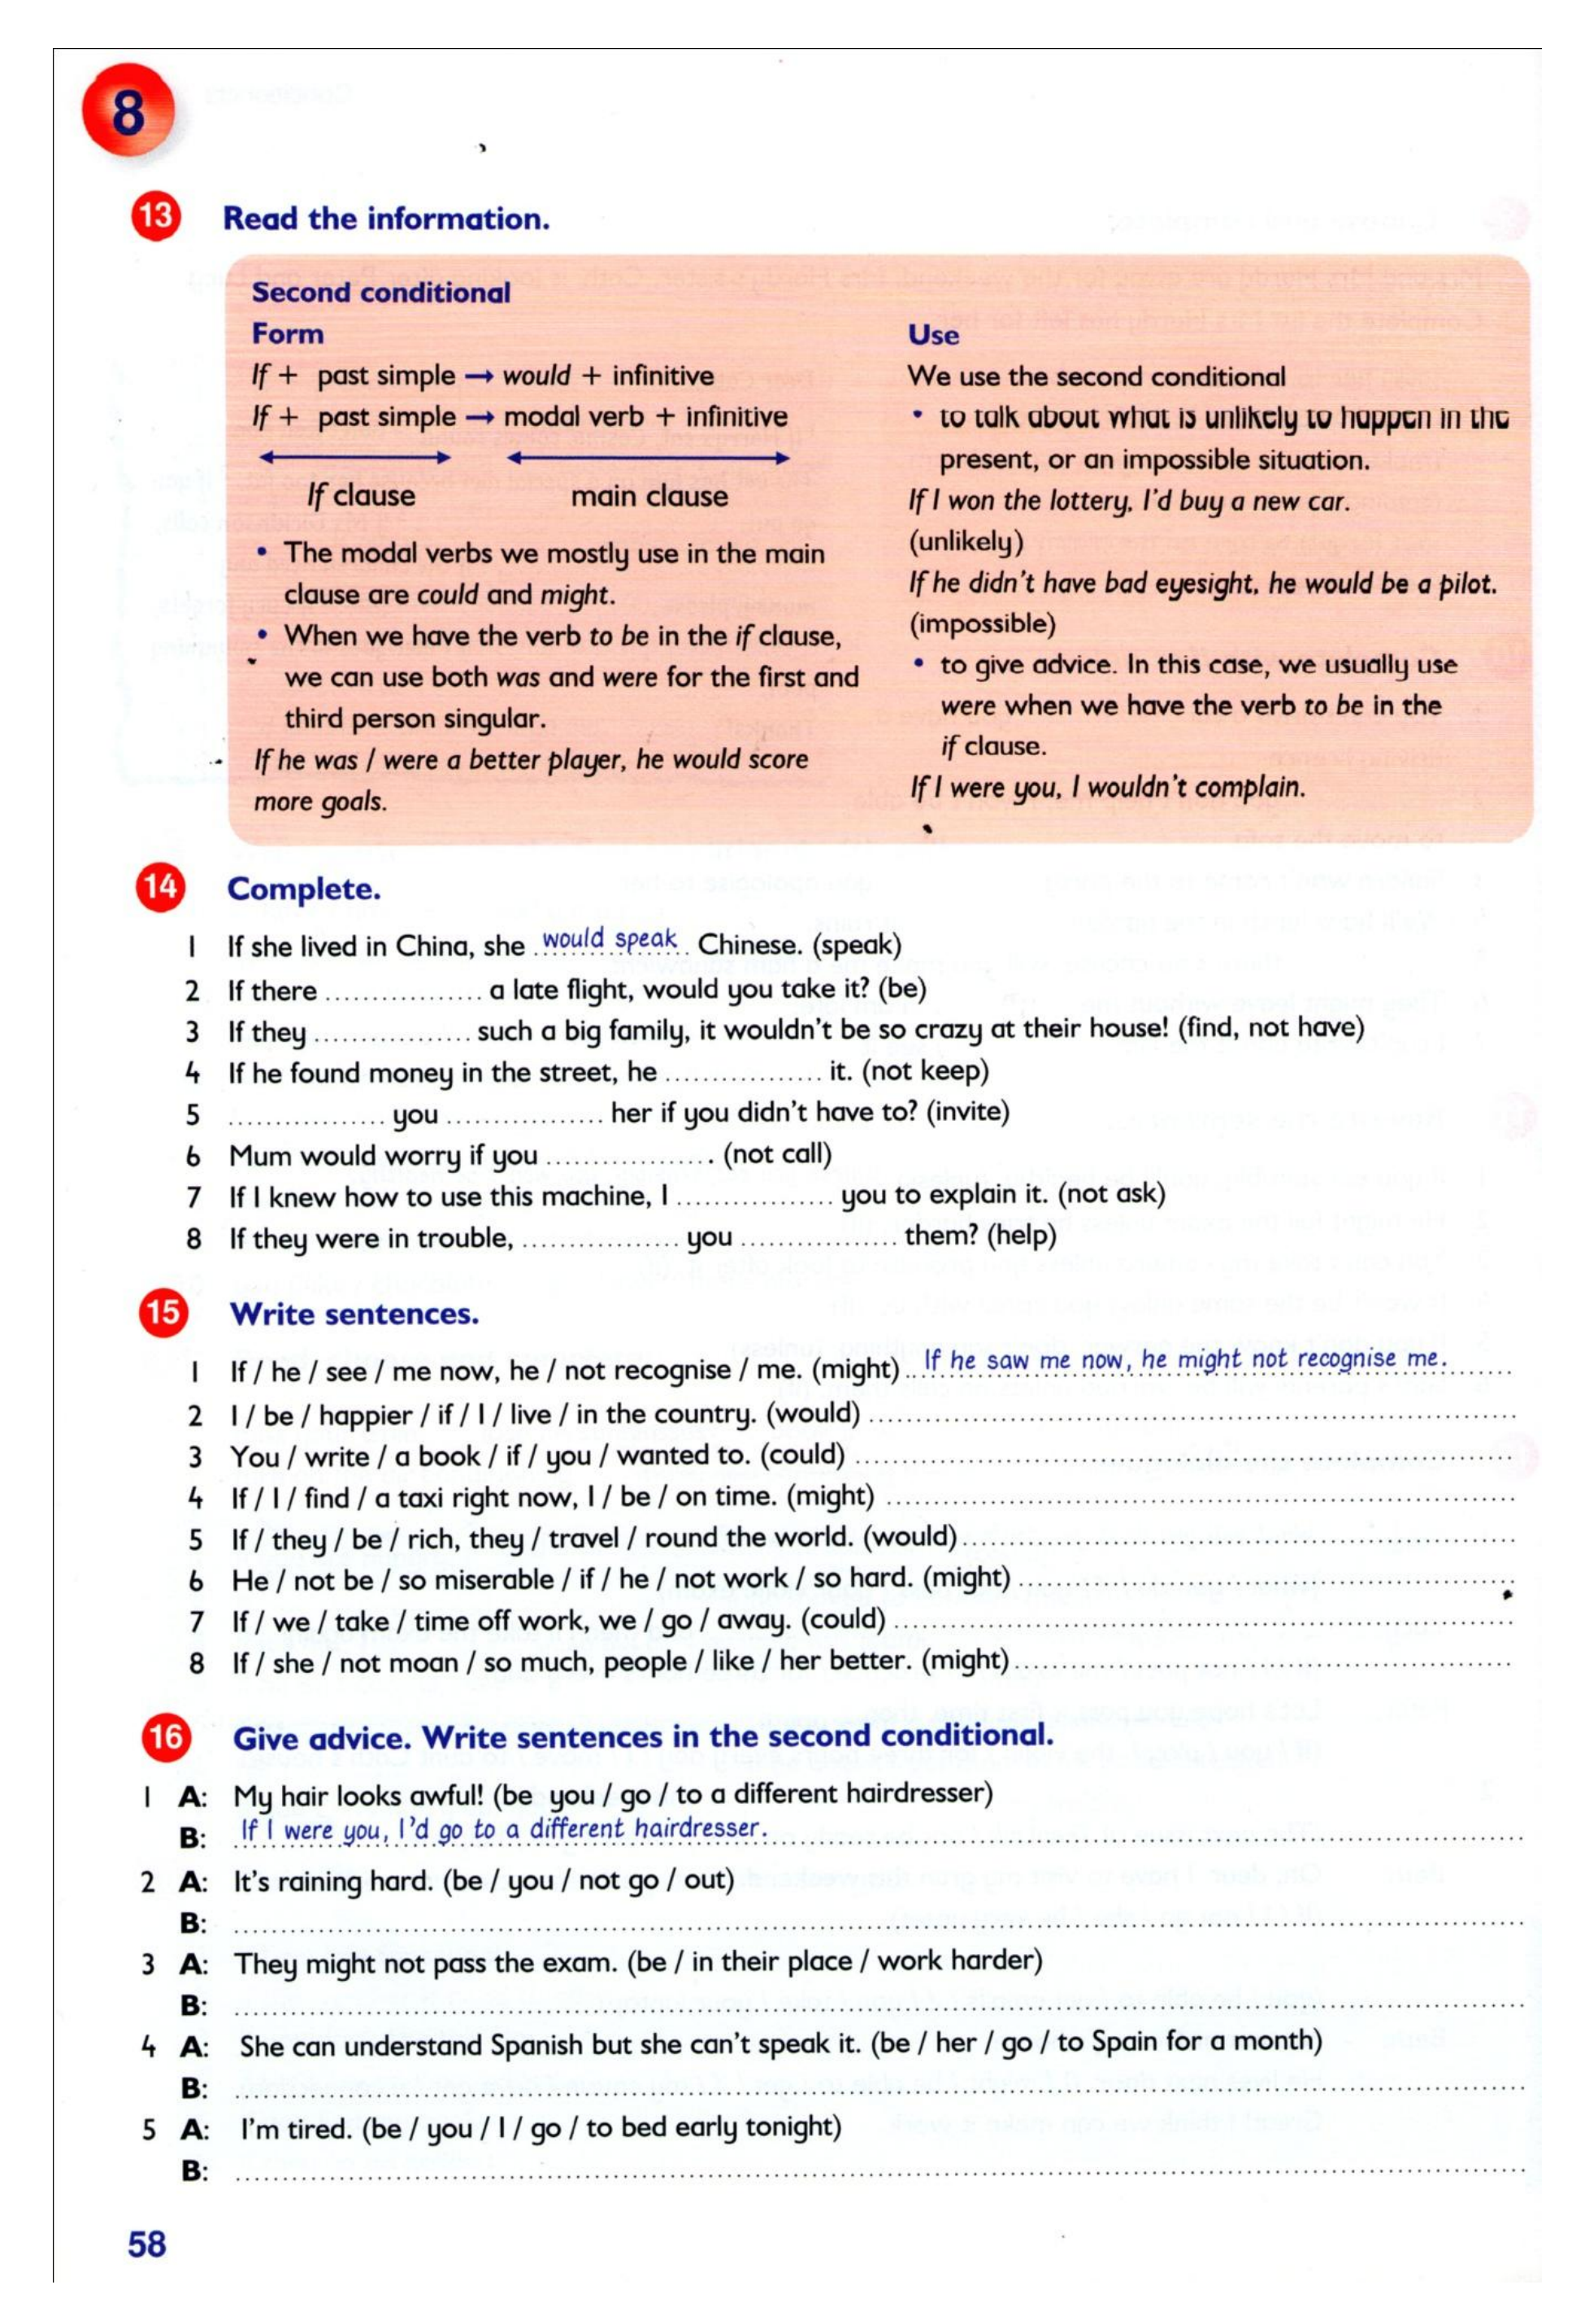 8
13 Read the information.
Second conditional
Form
If + past simple → would + infinitive
If + past simple → modal verb + infinitive
If clause main clause
• The modal verbs we mostly use in the main
clause are could and might.
• When we have the verb to be in the if clause,
we can use both was and were for the first and
third person singular.
If he was / were a better player, he would score
more goals.
Use
We use the second conditional
• to talk about what is unlikely to happen in the
present, or an impossible situation.
If I won the lottery, I'd buy a new car.
(unlikely)
If he didn't have bad eyesight, he would be a pilot.
(impossible)
• to give advice. In this case, we usually use
were when we have the verb to be in the
if clause.
If I were you, I wouldn't complain.
14 Complete.
1 If she lived in China, she would speak Chinese. (speak)
2 If there ................. a late flight, would you take it? (be)
3 If they ................. such a big family, it wouldn't be so crazy at their house! (find, not have)
4 If he found money in the street, he ................. it. (not keep)
5 ................. you ................. her if you didn't have to? (invite)
6 Mum would worry if you ................. . (not call)
7 If I knew how to use this machine, I ................. you to explain it. (not ask)
8 If they were in trouble, ................. you ................. them? (help)
15 Write sentences.
1 If / he / see / me now, he / not recognise / me. (might) If he saw me now, he might not recognise me.
2 I / be / happier / if / I / live / in the country. (would) .................
3 You / write / a book / if / you / wanted to. (could) .................
4 If / I / find / a taxi right now, I / be / on time. (might) .................
5 If / they / be / rich, they / travel / round the world. (would) .................
6 He / not be / so miserable / if / he / not work / so hard. (might) .................
7 If / we / take / time off work, we / go / away. (could) .................
8 If / she / not moan / so much, people / like / her better. (might) .................
16 Give advice. Write sentences in the second conditional.
1 A: My hair looks awful! (be you / go / to a different hairdresser)
B: If I were you, I'd go to a different hairdresser.
2 A: It's raining hard. (be / you / not go / out)
B: .................
3 A: They might not pass the exam. (be / in their place / work harder)
B: .................
4 A: She can understand Spanish but she can't speak it. (be / her / go / to Spain for a month)
B: .................
5 A: I'm tired. (be / you / I / go / to bed early tonight)
B: .................
58